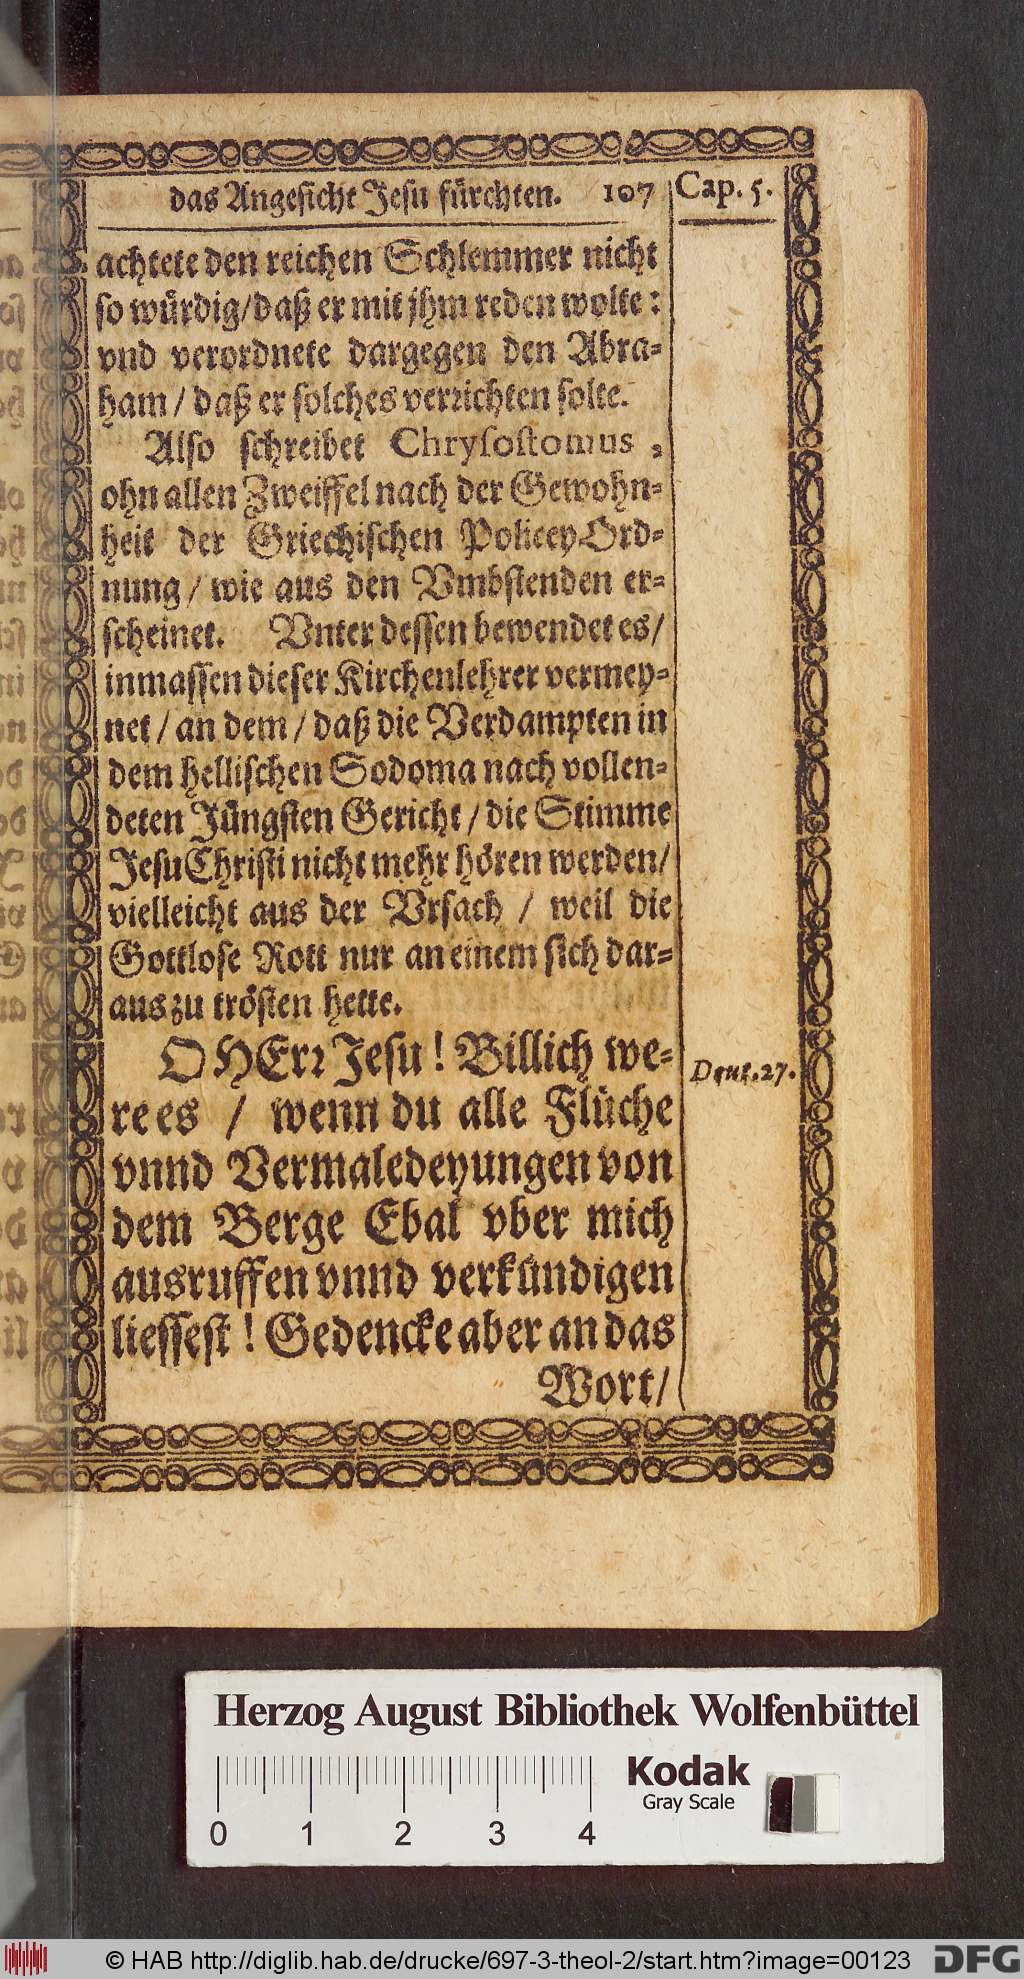 das Angesicht Jesu fürchten. 107 Cap. 5.
achtete den reichen Schlemmer nicht
so würdig/daß er mit jhm reden wolte:
vnd verordnete dargegen den Abra-
ham/ daß er solches verrichten solte.
Also schreibet Chrysostomus,
ohn allen Zweiffel nach der Gewohn-
heit der Griechischen PoliceyOrd-
nung/ wie aus den Vmbstenden er-
scheinet. Vnter dessen bewendet es/
inmassen dieser Kirchenlehrer vermey-
net/ an dem/ daß die Verdampten in
dem hellischen Sodoma nach vollen-
deten Jüngsten Gericht/ die Stimme
Jesu Christi nicht mehr hören werden/
vielleicht aus der Vrsach/ weil die
Gottlose Rott nur an einem sich dar-
aus zu trösten hette.
O HErr Jesu! Billich we-
re es/ wenn du alle Flüche
vnnd Vermaledeyungen von
dem Berge Ebal vber mich
ausruffen vnnd verkündigen
liessest! Gedencke aber an das
Wort/
Deut. 27.
Herzog August Bibliothek Wolfenbüttel
Kodak
Gray Scale
0 1 2 3 4
© HAB http://diglib.hab.de/drucke/697-3-theol-2/start.htm?image=00123
DFG